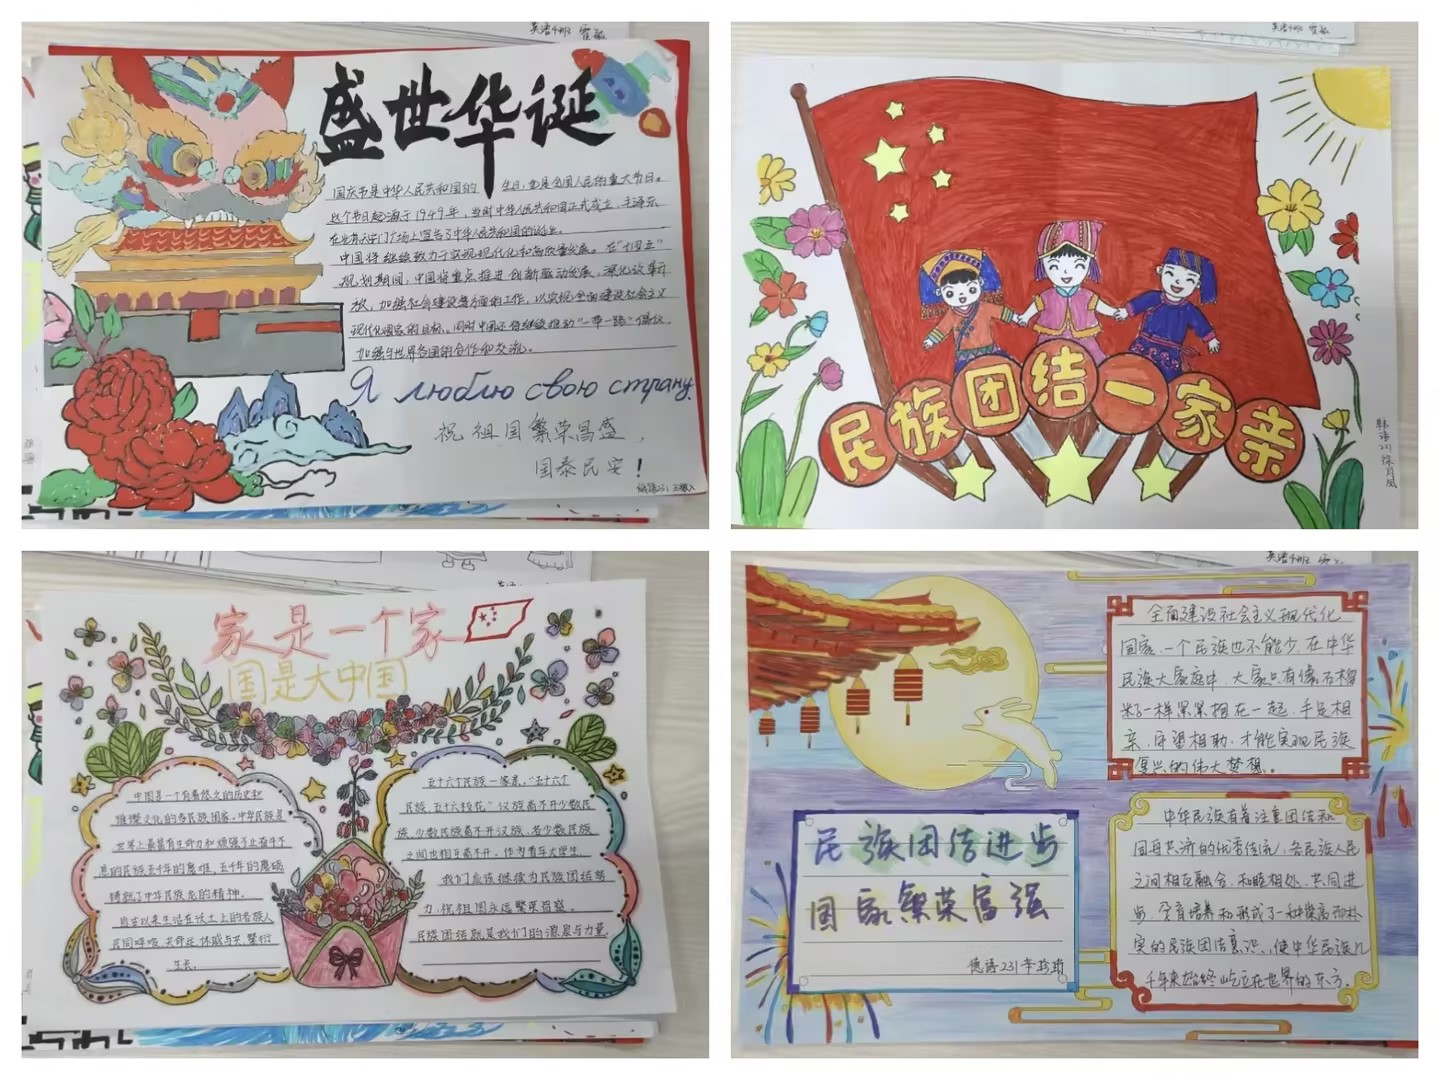 英语4班
盛世华诞
国庆节是中华人民共和国的 生日,也是全国人民的重大节日。
这个节日起源于1949年,当时中华人民共和国正式成立,毛泽东
在北京天安门广场上宣告了中华人民共和国的诞生。
中国将继续致力于实现现代化和高质量发展。在“十四五”
规划期间,中国将重点推进创新驱动发展,深化改革开
放,加强社会建设等方面的工作,以实现全面建设社会主义
现代化国家的目标。同时中国还将继续推动“一带一路”倡议,
加强与世界各国的合作和交流。
Я люблю свою страну.
祝祖国繁荣昌盛,
国泰民安!
英语4班
民族团结一家亲
韩语231 徐月凤
家是一个家
国是大中国
中国是一个有着悠久的历史和
璀璨文化的多民族国家。中华民族是
世界上最富有生命力和顽强不止奋斗不
息的民族五千年的磨难,五千年的磨砺
铸就了中华民族龙的精神。
自古以来生活在沃土上的各族人
民同呼吸、共命运、休戚与共、繁衍
生长。
五十六个民族一家亲,“五十六个
民族,五十六枝花”汉族离不开少数民
族,少数民族离不开汉族,各少数民族
之间也相互离不开。作为青年大学生,
我们应该继续为民族团结努
力,祝祖国永远繁荣昌盛。
民族团结就是我们的源泉与力量.
英语4班
全面建设社会主义现代化
国家,一个民族也不能少.在中华
民族大家庭中,大家只有像石榴
籽一样紧紧抱在一起,手足相
亲,守望相助,才能实现民族
复兴的伟大梦想。
民族团结进步
国家繁荣富强
德语231
中华民族有着注重团结和
同舟共济的优秀传统,各民族人民
之间相互融合、和睦相处、共同进
步,孕育培养和形成了一种崇高而朴
实的民族团结意识,使中华民族几
千年来始终屹立在世界的东方。